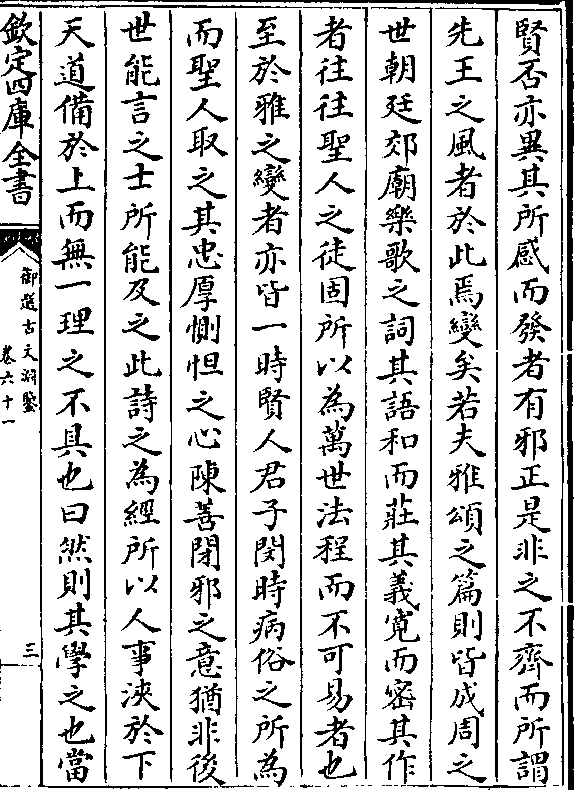 賢否亦異其所感而發者有邪正是非之不齊而所謂
先王之風者於此焉變矣若夫雅頌之篇則皆成周之
世朝廷郊廟樂歌之詞其語和而莊其義寛而密其作
者往往聖人之徒固所以為萬世法程而不可易者也
至於雅之變者亦皆一時賢人君子閔時病俗之所為
而聖人取之其忠厚惻怛之心陳善閉邪之意猶非後
世能言之士所能及之此詩之為經所以人事浹於下
天道備於上而無一理之不具也曰然則其學之也當
欽定四庫全書
御選古文淵鑒
卷六十一
三